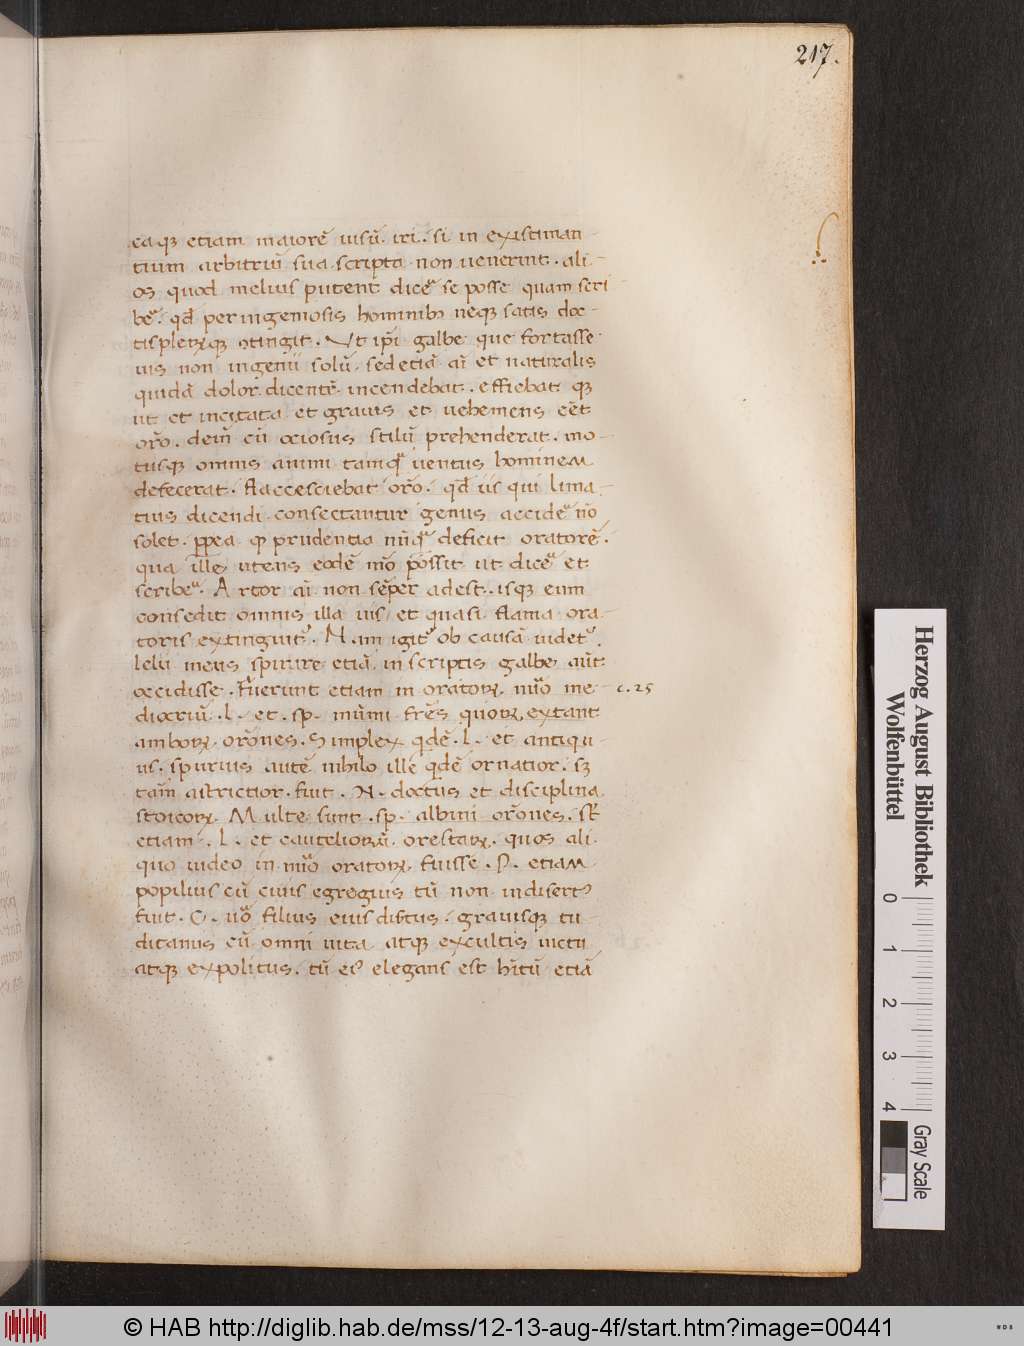 217.
eaqꝫ etiam maiorē uisū. iri. si in existiman-
tium arbitriū sua scripta non uenerint. ali-
os quod melius putent diceʳ se posse quam scri
beʳ. qđ peringeniosis hominibꝫ neqꝫ satis doc-
tis pleꝝqꝫ ↄtingit. Vt ip̄i galbe que fortasse
uis non ingenii solū. sed etiā ai̅ et naturalis
quidā dolor. dicentē. incendebat. effiebat qꝫ
ut et incitata et grauis et uehemens eēt
or̄o. dein̄ cū ociosus stilū prehenderat. mo-
tusqꝫ omnis animi tamqʳ uentus hominem
defecerat. flaccesciebat or̄o. qđ iis qui lima
tius dicendi. consectantur genus accideʳ nō
solet. ꝓpea ꝙ prudentia nūqʳ deficit oratorē.
qua ille utens eodē mō possit ut diceʳ et
scribeʳ. Ardor ai̅ non sēper adest. isqꝫ cum
consedit omnis illa uis et quasi flama ora-
toris extinguitʳ. N am igitʳ ob causā uidetʳ.
lelii mens spirare etiā in scriptis galbe aūt
occidisse. Fuerunt etiam in oratoꝝ. nūo me- c. 25
diocriū. l. et. sp. mūmi fr̄es quoꝝ extant
amboꝝ. or̄ones. Simplex qđē. l. et antiqu
us. spurius autē nihilo ille qđē ornatior. sꝫ
tam̄ astrictior. fuit. N. doctus et disciplina
stoicoꝝ. Multe sunt. sp. albini or̄ones. st̄
etiam. L. et c aureliorū. orestaꝝ. quos ali.
quo uideo in nūo oratoꝝ fuisse. P. etiam
popilius cū ciuis egregius tū non indisertꝰ
fuit. C. uō filius eius disertus. grauisqꝫ tu
ditanus cū omni uita atqꝫ excultis uictu
atqꝫ expolitus. tū eiꝰ elegans est hītū etiā
Herzog August Bibliothek
Wolfenbüttel
0 1 2 3 4
Gray Scale
© HAB http://diglib.hab.de/mss/12-13-aug-4f/start.htm?image=00441